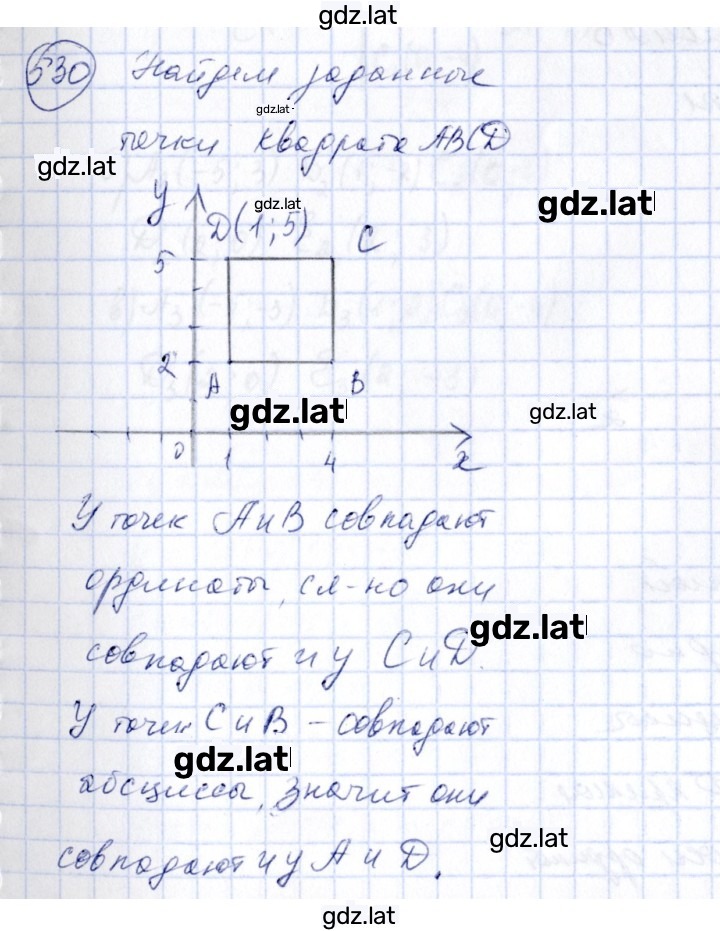 gdz.lat
530 Найдем заданные
gdz.lat
точки квадрата ABCD
gdz.lat
gdz.lat
gdz.lat
y
D(1;5) C
5
2
A B
gdz.lat
gdz.lat
0 1 4 x
У точек A и B совпадают
ординаты, сл-но они
gdz.lat
совпадают и у C и D.
У точек C и B – совпадают
gdz.lat
абсциссы, значит они
gdz.lat
совпадают и у A и D.
gdz.lat